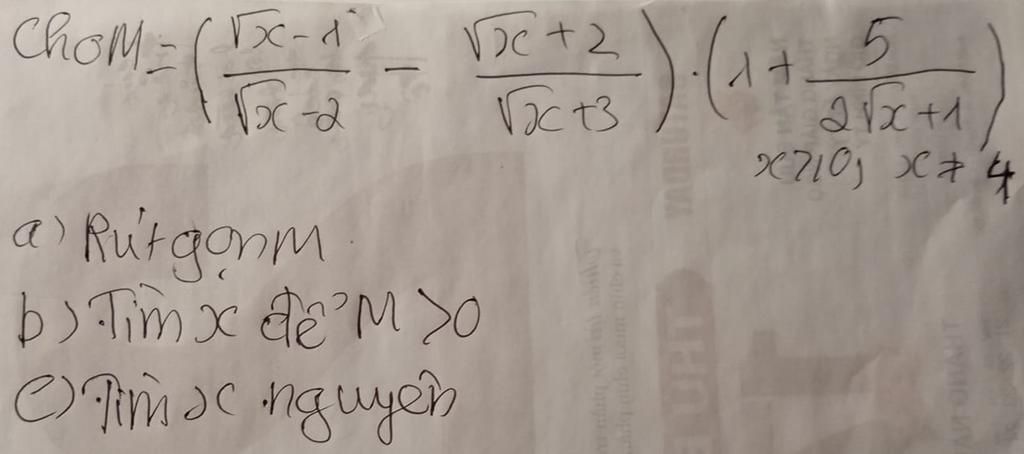 Cho M = ( (√x - 1)/(√x - 2) - (√x + 2)/(√x + 3) ) . ( 1 + 5/(2√x + 1) )
x ≥ 0, x ≠ 4
a) Rút gọn M.
b) Tìm x để M > 0
c) Tìm x nguyên